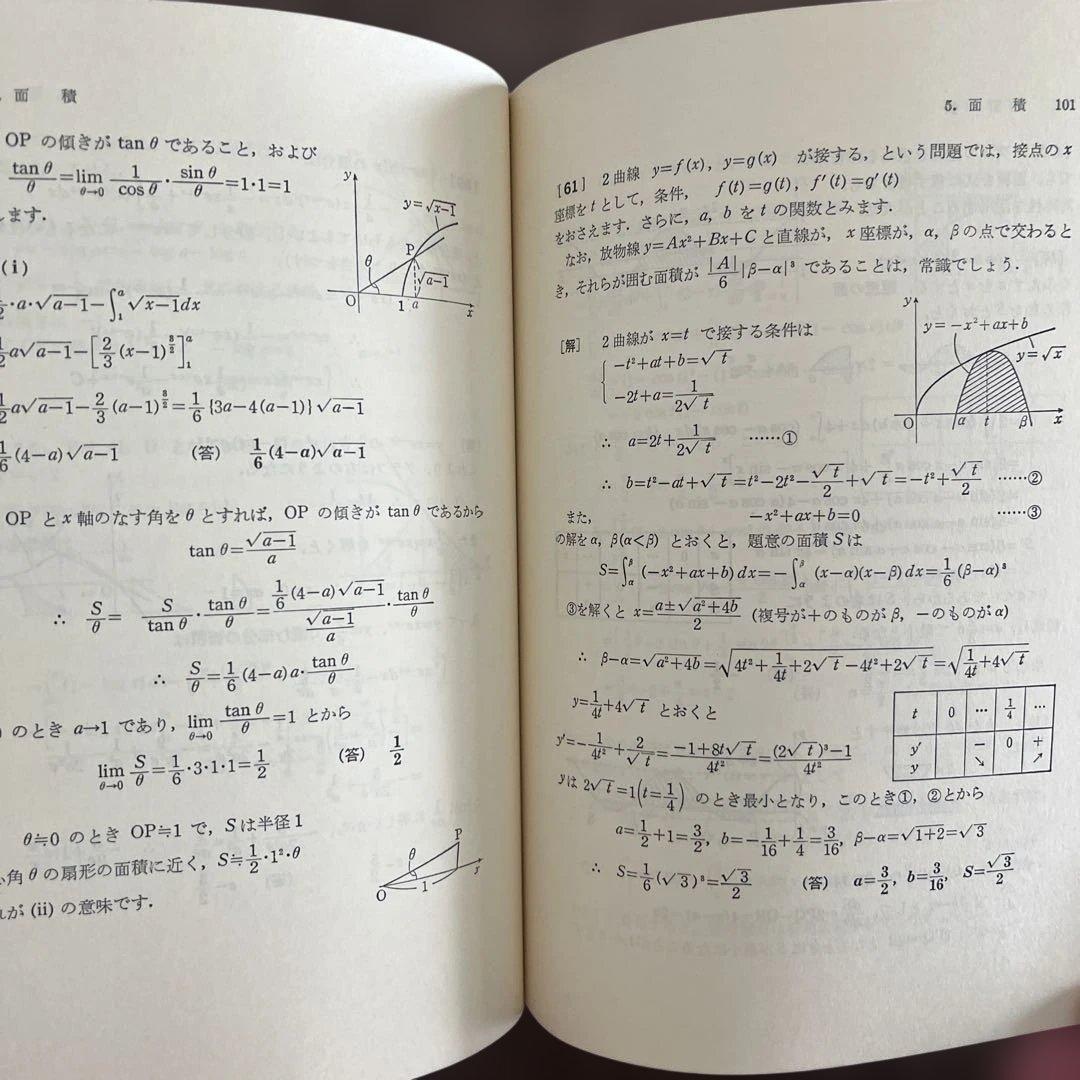 面 積
OP の傾きが tan θ であること，および
tan θ/θ=lim θ→0 1/cos θ・sin θ/θ=1・1=1
します．
(i)
・a・√a−1−∫₁ᵃ√x−1dx
a√a−1−[2/3(x−1)^3/2]₁ᵃ
a√a−1−2/3(a−1)^3/2=1/6{3a−4(a−1)}√a−1
(4−a)√a−1 (答) 1/6(4−a)√a−1
y
y=√x−1
P
θ
√a−1
O 1 a x
OP と x 軸のなす角を θ とすれば，OP の傾きが tan θ であるから
tan θ=√a−1/a
∴ S/θ= S/tan θ・tan θ/θ=1/6(4−a)√a−1/(√a−1/a)・tan θ/θ
∴ S/θ=1/6(4−a)a・tan θ/θ
のとき a→1 であり，lim θ→0 tan θ/θ=1 とから
lim θ→0 S/θ=1/6・3・1・1=1/2 (答) 1/2
θ≒0 のとき OP≒1 で，S は半径 1
角 θ の扇形の面積に近く，S≒1/2・1²・θ
が (ii) の意味です．
P
θ
1
O
5. 面 積 101
[61] 2 曲線 y=f(x)，y=g(x) が接する，という問題では，接点の x
座標を t として，条件， f(t)=g(t)，f′(t)=g′(t)
をおさえます．さらに，a，b を t の関数とみます．
なお，放物線 y=Ax²+Bx+C と直線が，x 座標が，α，β の点で交わると
き，それらが囲む面積が |A|/6|β−α|³ であることは，常識でしょう．
[解] 2 曲線が x=t で接する条件は
−t²+at+b=√t
−2t+a=1/2√t
∴ a=2t+1/2√t ……①
∴ b=t²−at+√t=t²−2t²−√t/2+√t=−t²+√t/2 ……②
y
y=−x²+ax+b
y=√x
O α t β x
また， −x²+ax+b=0 ……③
の解を α，β(α<β) とおくと，題意の面積 S は
S=∫αβ(−x²+ax+b)dx=−∫αβ(x−α)(x−β)dx=1/6(β−α)³
③を解くと x=a±√a²+4b/2 (複号が＋のものが β，−のものが α)
∴ β−α=√a²+4b=√4t²+1/4t+2√t−4t²+2√t=√1/4t+4√t
y=1/4t+4√t とおくと
y′=−1/4t²+2/√t=−1+8t√t/4t²=(2√t)³−1/4t²
t 0 … 1/4 …
y′ − 0 +
y ↘ ↗
y は 2√t=1(t=1/4) のとき最小となり，このとき①，②とから
a=1/2+1=3/2，b=−1/16+1/4=3/16，β−α=√1+2=√3
∴ S=1/6(√3)³=√3/2 (答) a=3/2，b=3/16，S=√3/2